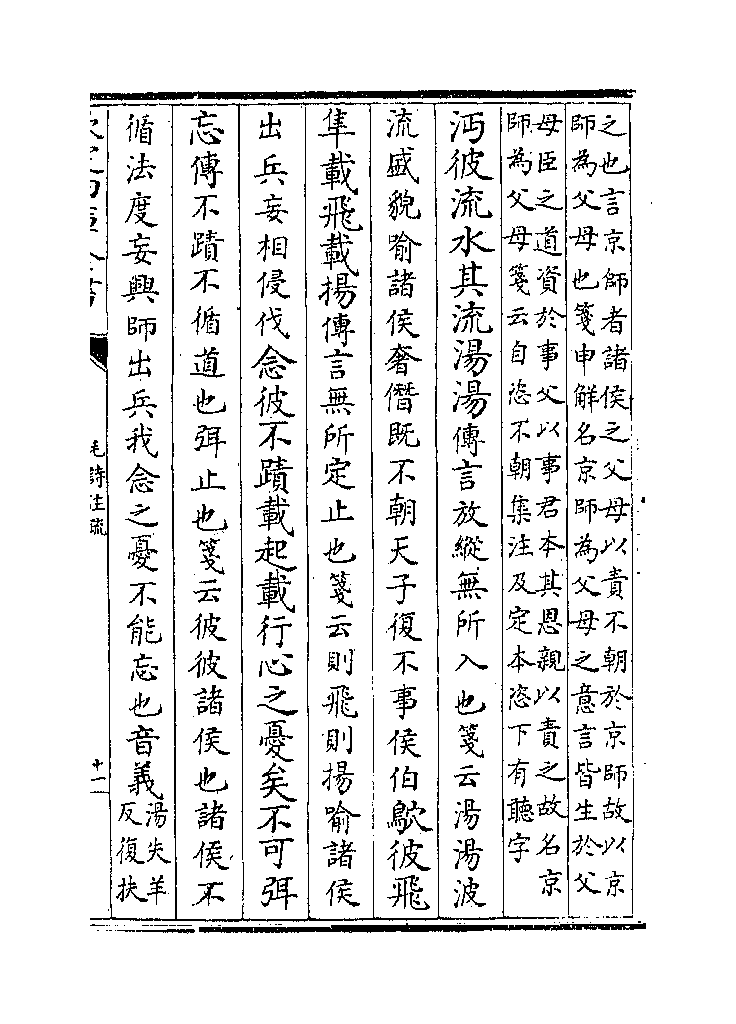 之也言京師者諸侯之父母以責不朝於京師故以京
師為父母也箋申解名京師為父母之意言皆生於父
母臣之道資於事父以事君本其恩親以責之故名京
師為父母箋云自恣不朝集注及定本恣下有聽字
沔彼流水其流湯湯傳言放縱無所入也箋云湯湯波
流盛貌喻諸侯奢僭既不朝天子復不事侯伯鴥彼飛
隼載飛載揚傳言無所定止也箋云則飛則揚喻諸侯
出兵妄相侵伐念彼不蹟載起載行心之憂矣不可弭
忘傳不蹟不循道也弭止也箋云彼彼諸侯也諸侯不
循法度妄興師出兵我念之憂不能忘也音義湯失羊
反復扶
毛詩注疏
十一